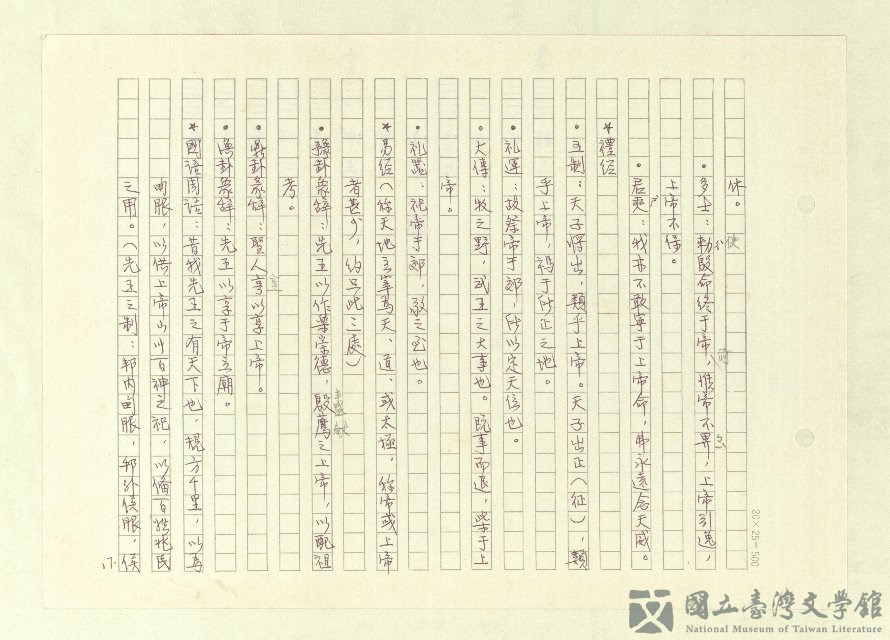 休。
•多士：勅殷命終于帝，惟帝不畀，上帝引逸，
上帝不保。
•君奭：我亦不敢寧于上帝命，弗永遠念天威。
*禮經
•王制：天子將出，類乎上帝。天子出正（征），類
乎上帝，禡于所正之地。
•礼運：故祭帝于郊，所以定天位也。
•大傳：牧之野，武王之大事也。既事而退，柴于上
帝。
•礼器：祀帝于郊，敬之至也。
*易經（稱天地主宰為天、道、或太極，稱帝或上帝
者甚少，約只此三處）
•豫卦象辞：先王以作樂崇德，殷薦之上帝，以配祖
考。
•鼎卦彖辞：聖人亨以享上帝。
•渙卦象辞：先王以享于帝立廟。
*國語周語：昔我先王之有天下也，規方千里，以為
甸服，以供上帝山川百神之祀，以備百姓兆民
之用。（先王之制：邦内甸服，邦外侯服，侯
17.
使
盛
20×25=500
國立臺灣文學館
National Museum of Taiwan Literature